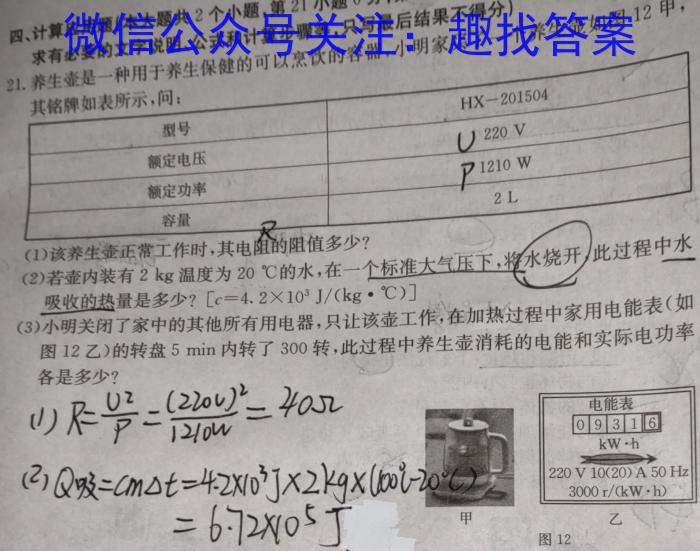 四、计算
微信公众号关注：趣找答案
21. 养生壶是一种用于养生保健的可以烹饮的容器,小明家
其铭牌如表所示,问:
型号 HX—201504
额定电压 U 220 V
额定功率 P 1210 W
容量 2 L
R
(1)该养生壶正常工作时,其电阻的阻值多少?
(2)若壶内装有 2 kg 温度为 20 ℃的水,在一个标准大气压下,将水烧开,此过程中水
吸收的热量是多少? [c=4.2×10³ J/(kg·℃)]
(3)小明关闭了家中的其他所有用电器,只让该壶工作,在加热过程中家用电能表(如
图 12 乙)的转盘 5 min 内转了 300 转,此过程中养生壶消耗的电能和实际电功率
各是多少?
(1) R=U²/P=(220V)²/1210W=40Ω
(2) Q吸=cmΔt=4.2×10³J×2kg×(100℃-20℃)
=6.72×10⁵J
电能表
0 9 3 1 6
kW·h
220 V 10(20) A 50 Hz
3000 r/(kW·h)
甲 乙
图 12